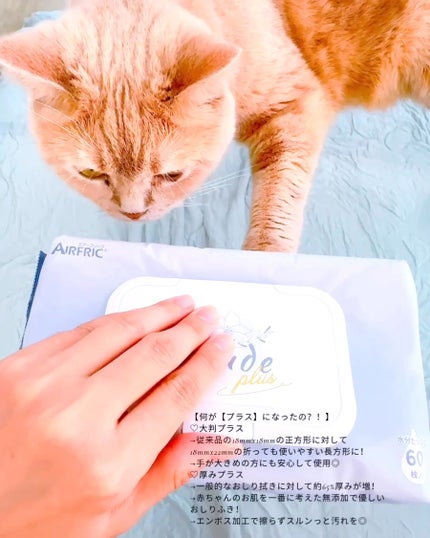 AIRFRIC
ude
plus
【何が【プラス】になったの？！】
♡大判プラス
→従来品の18mmx18mmの正方形に対して
18mmx22mmの折っても使いやすい長方形に！
→手が大きめの方にも安心して使用◎
♡厚みプラス
→一般的なおしり拭きに対して約65%厚みが増！
→赤ちゃんのお肌を一番に考えた無添加で優しい
おしりふき！
→エンボス加工で擦らずスルンっと汚れを◎
60
枚